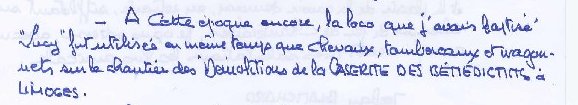 - A cette époque encore, la loco que j'avais baptisé
"Lucy" fut utilisée en même temps que chevaux, tombereaux et wagon-
nets sur le chantier des Démolitions de la CASERNE DES BÉNÉDICTINS à
LIMOGES.